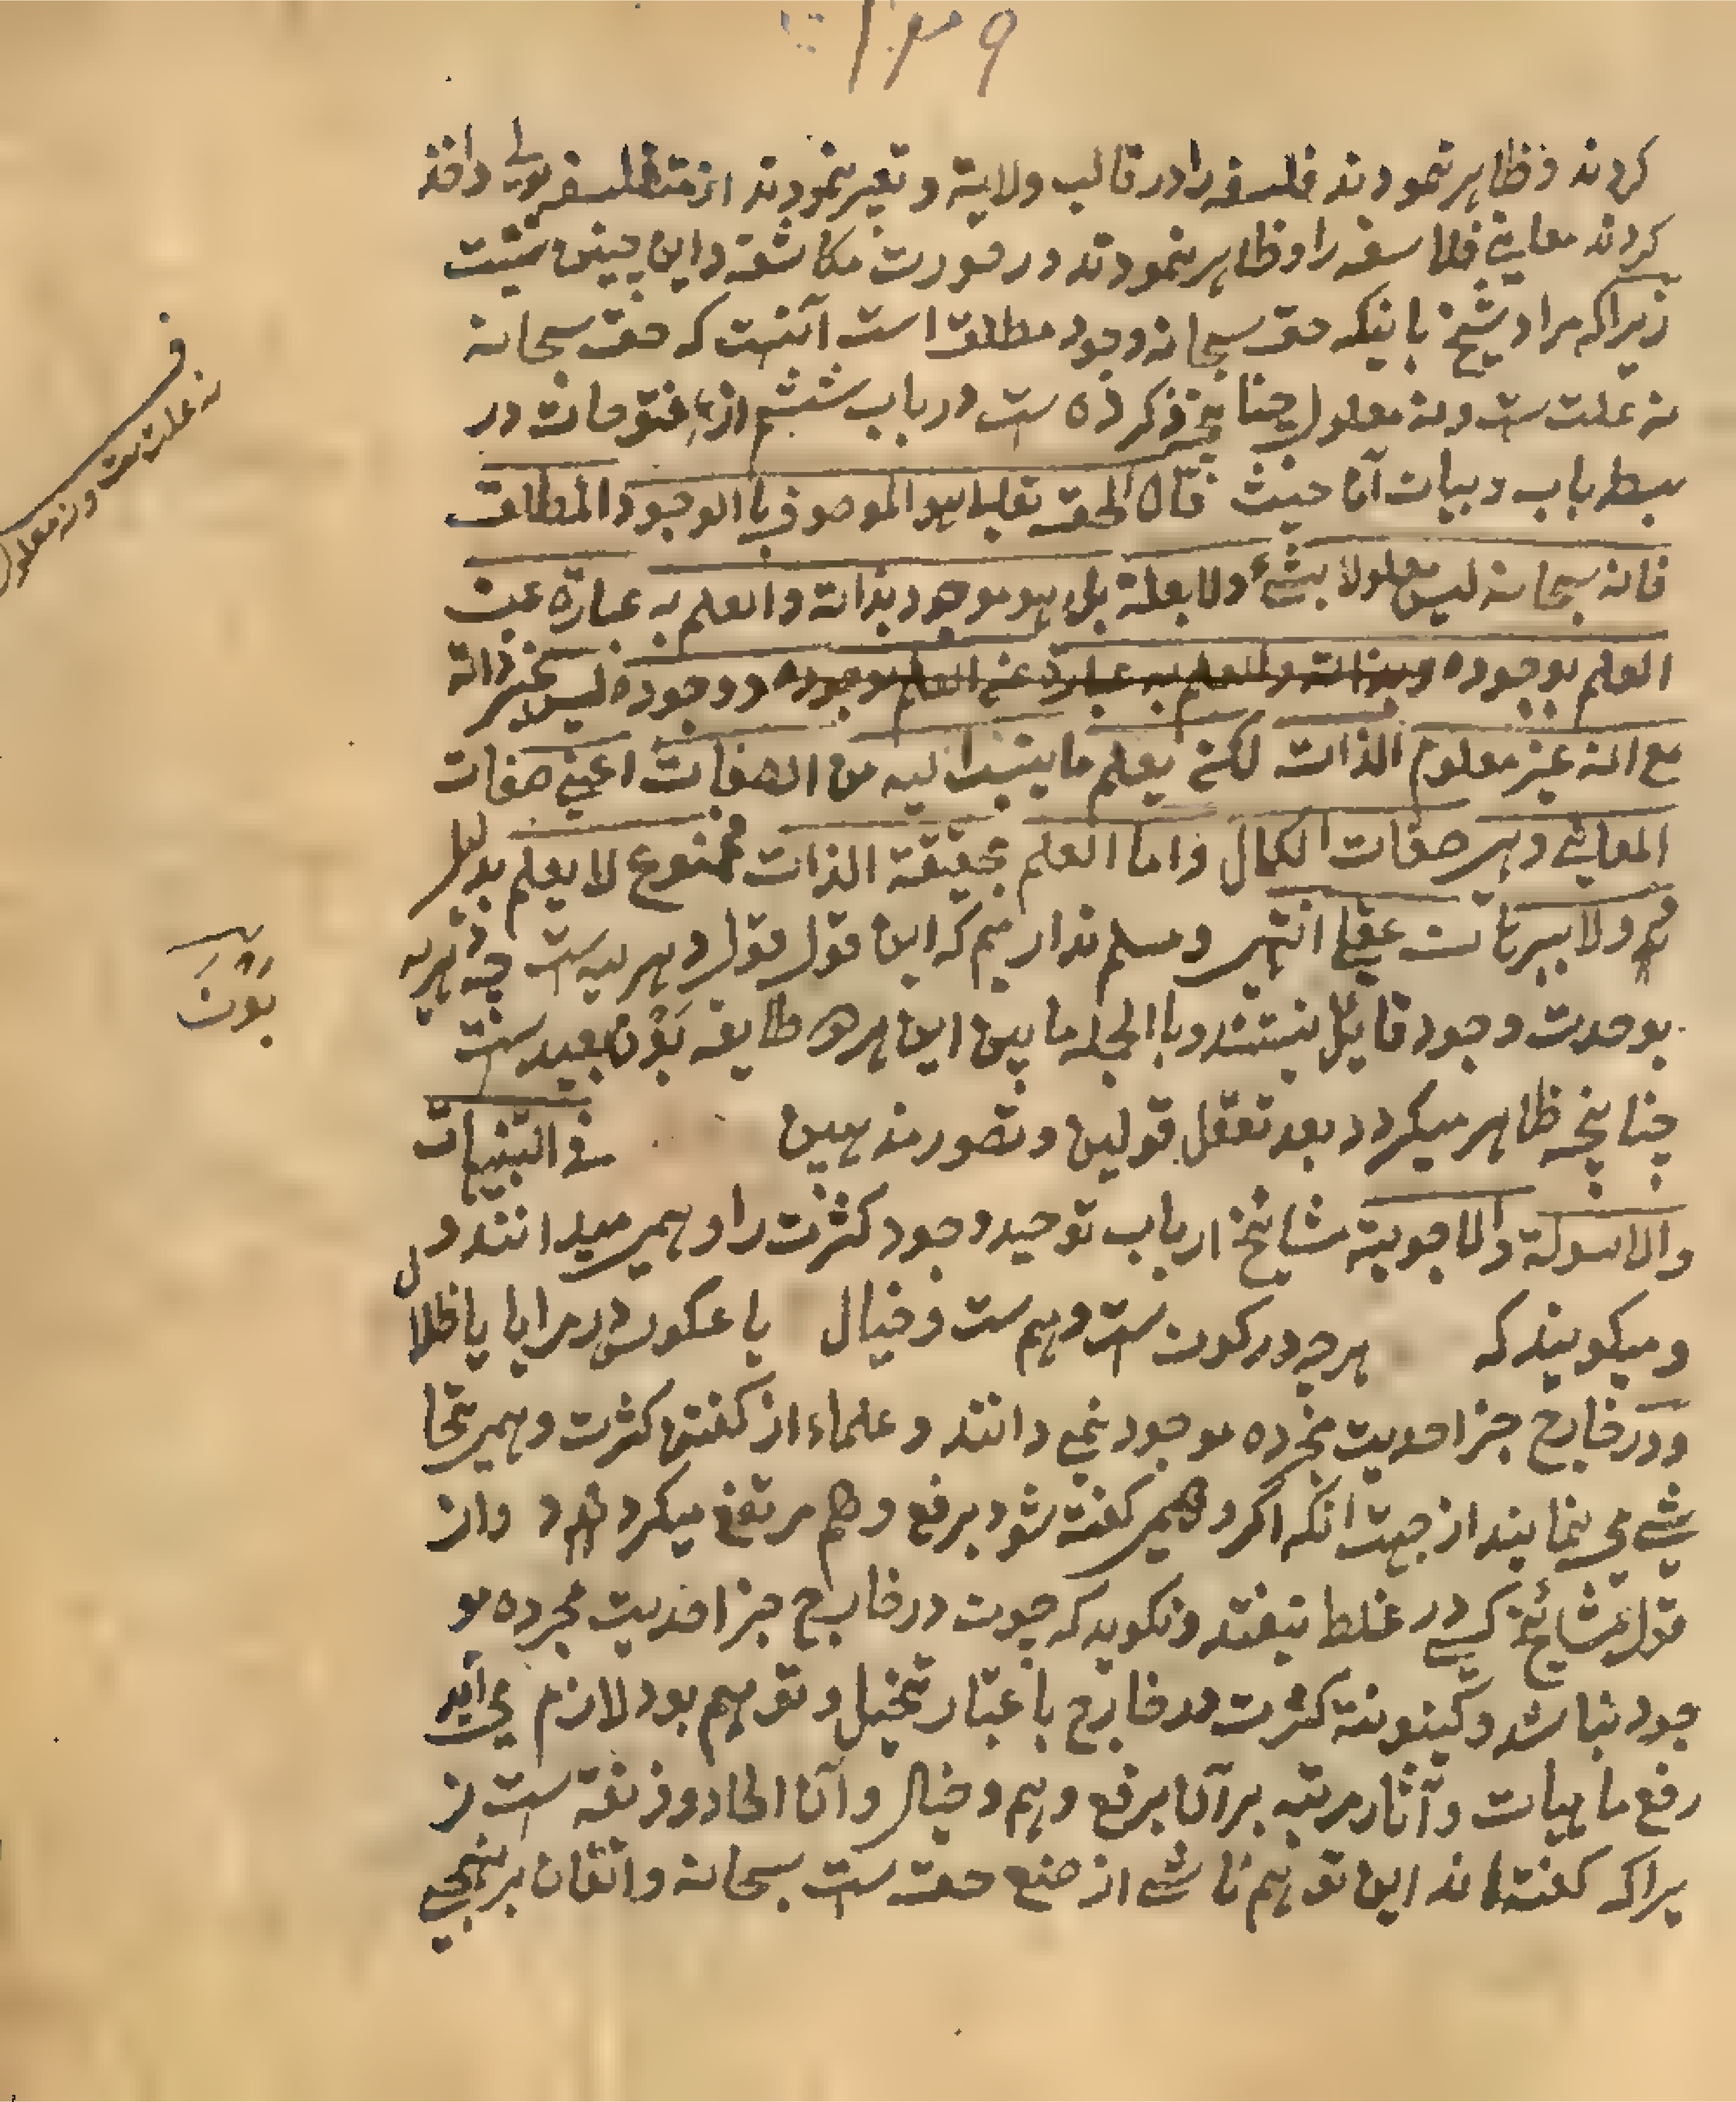 ۱۳۹
کردند و ظاهر نمودند فلسفه را در قالب ولایة و تعبیر نمودند از متفلسفه بولی و اخذ
کردند معانی فلاسفه را و ظاهر نمودند در صورت مکاشفه و این چنین نیست
زیرا که مراد شیخ باینکه حق سبحانه وجود مطلق است آنست که حق سبحانه
نه علت ست و نه معلول چنانچه ذکر کرده ست در باب ششم از فتوحات در
بسط باب و بیان آن حیث قال الحق تعالی هو الموصوف باالوجود المطلق
فانه سبحانه لیس معلولا بشیء ولا بعلة بل هو موجود بذاته والعلم به عبارة عن
العلم بوجوده و وجوده لیس غیر ذاته
مع انه غیر معلوم الذات لکن یعلم ما ینسب الیه من الصفات اعنی صفات
المعانی و هی صفات الکمال و اما العلم بحقیقة الذات فممنوع لا یعلم بدلیل
ولا ببرهان عقلی انتهی و مسلم نداریم که این قول قول دهریه ست چه دهریه
بوحدت وجود قایل نیستند و باالجمله ما بین این هر دو طایفه بَوْن بعید ست
چنانچه ظاهر میکردد بعد تعقل قولین و تصور مذهبین فی التنبیهات
والاسولة والاجوبة مشایخ ارباب توحید وجود کثرت را وهمی میدانند و
و میکویند که هر چه در کون ست وهم ست و خیال یا عکوس در مرایا یا ظلال
و در خارج جز احدیت مجرده موجود نمی دانند و علماء از کفتن کثرت وهمی تحا
شی می نمایند از جهت انکه اگر وهمی کفته شود برفع وهم مرتفع میکردد و از
قول مشایخ کسی در غلط نیفتد و نکوید که چون در خارج جز احدیت مجرده مو
جود نباشد و کینونة کثرت در خارج باعتبار تخیل و توهم بود لازم می آید
رفع ماهیات و آثار مرتبه بر آن برفع وهم و خیال و آن الحاد و زندقة ست ز
یرا که کفته اند این توهم ناشی از صنع حق ست سبحانه و اتقان بر نهجی
ف
نه علت ست و نه معلول
بَوْن